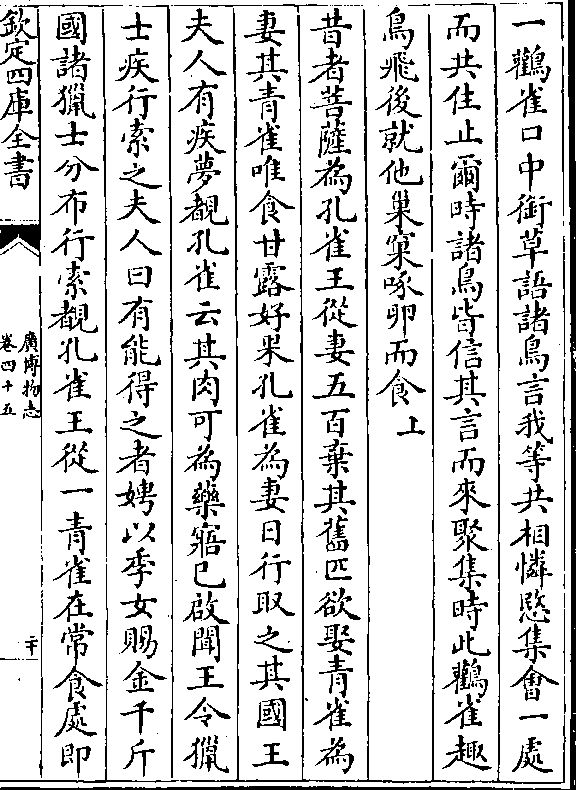 一鸛雀口中銜草語諸鳥言我等共相憐愍集會一處
而共住止爾時諸鳥皆信其言而來聚集時此鸛雀趣
鳥飛後就他巢窠啄卵而食上
昔者菩薩為孔雀王從妻五百棄其舊匹欲娶青雀為
妻其青雀唯食甘露好果孔雀為妻日行取之其國王
夫人有疾夢覩孔雀云其肉可為藥寤已啟聞王令獵
士疾行索之夫人曰有能得之者娉以季女賜金千斤
國諸獵士分布行索覩孔雀王從一青雀在常食處即
欽定四庫全書
廣博物志
卷四十五
二十